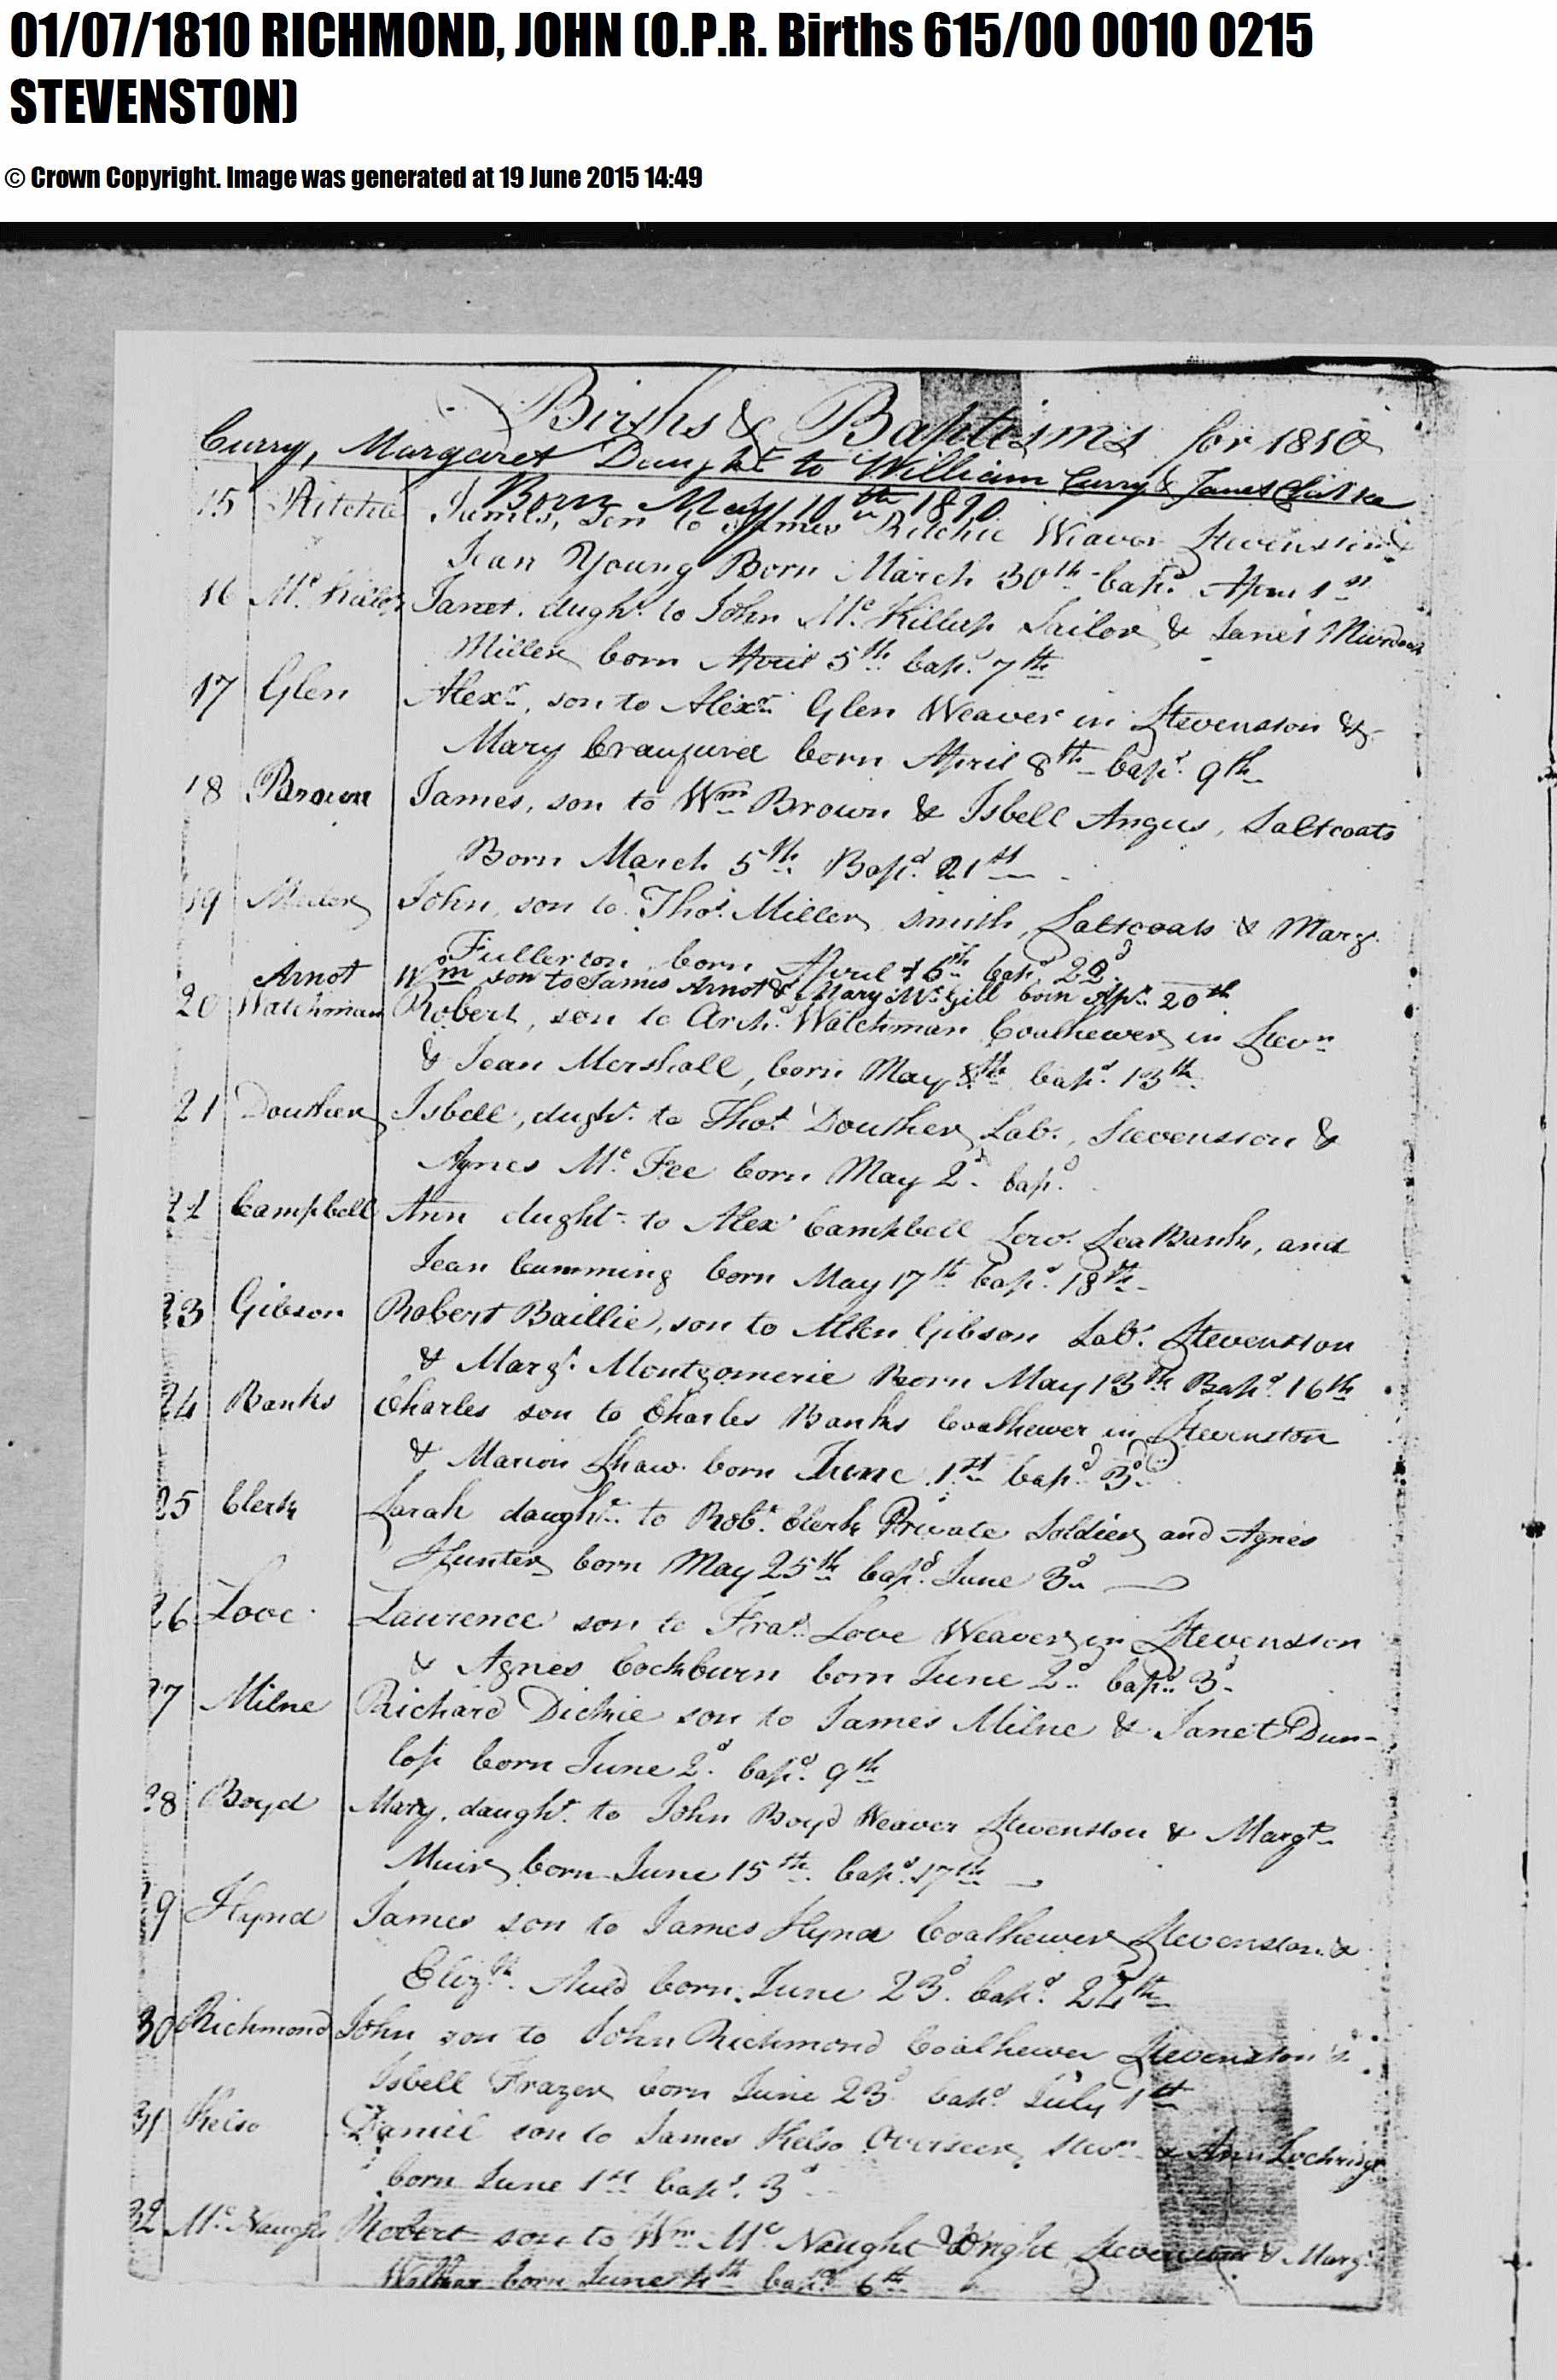 01/07/1810 RICHMOND, JOHN (O.P.R. Births 615/00 0010 0215
STEVENSTON)
© Crown Copyright. Image was generated at 19 June 2015 14:49
Births & Baptisms for 1810
Curry, Margaret Daught to William Curry & Janet
Born May 10th 1810
15 Ritchie James, Son to James Ritchie Weaver Stevenston &
Jean Young Born March 30th bapd. April 1st
16 Mc. Killop Janet. dught. to John Mc. Killup Sailor & Janet Murdoch
Miller born April 5th bapd. 7th
17 Glen Alexr., son to Alexr. Glen Weaver in Stevenston &
Mary Craufurd born April 8th bapd. 9th
18 Brown James, son to Wm Brown & Isbell Angus, Saltcoats
Born March 5th Bapd. 21st
19 Miller John, son to Thos. Miller Smith, Saltcoats & Marg.
Fullerton born April 16th bapd 22d
Arnot Wm son to James Arnot & Mary Mc. Gill born Apr. 20th
20 Watchman Robert, son to Archd. Watchman Coalhewer in Stevn
& Jean Mershall, born May 8th bapd. 13th
21 Douther Isbell, dught. to Thos. Douther Labr., Stevenston &
Agnes Mc. Fee born May 2d. bapd.
22 Campbell Ann dught. to Alexr Campbell Serv. Sea Bank, and
Jean Cumming born May 17th bapd. 18th
23 Gibson Robert Baillie, son to Allen Gibson Labr. Stevenston
& Margt. Montgomerie Born May 13th Bapd. 16th
24 Banks Charles son to Charles Banks Coalhewer in Stevenston
& Marion Shaw born June 1st bapd 3d
25 Clerk Sarah daught. to Robt. Clerk Private Soldier and Agnes
Hunter born May 25th bapd. June 3d
26 Love Laurence son to Fras. Love Weaver in Stevenston
& Agnes Cockburn born June 2d bapd. 3d
27 Milne Richard Dickie son to James Milne & Janet Dun-
lop born June 2d. bapd. 9th
28 Boyd Mary, daught. to John Boyd Weaver Stevenston & Margt.
Muir born June 15th. bapd. 17th
29 Hynd James son to James Hynd Coalhewer Stevenston &
Elizth. Auld born June 23d. bapd. 24th
30 Richmond John son to John Richmond Coalhewer Stevenston &
Isbell Frazer born June 23d bapd July 1st
31 Kelso Daniel son to James Kelso Overseer Stevn & Ann Lochridge
born June 1st bapd. 3d
32 Mc. Naught Robert son to Wm Mc Naught Wright Stevenston & Margt.
Walker born June 4th bapd 6th